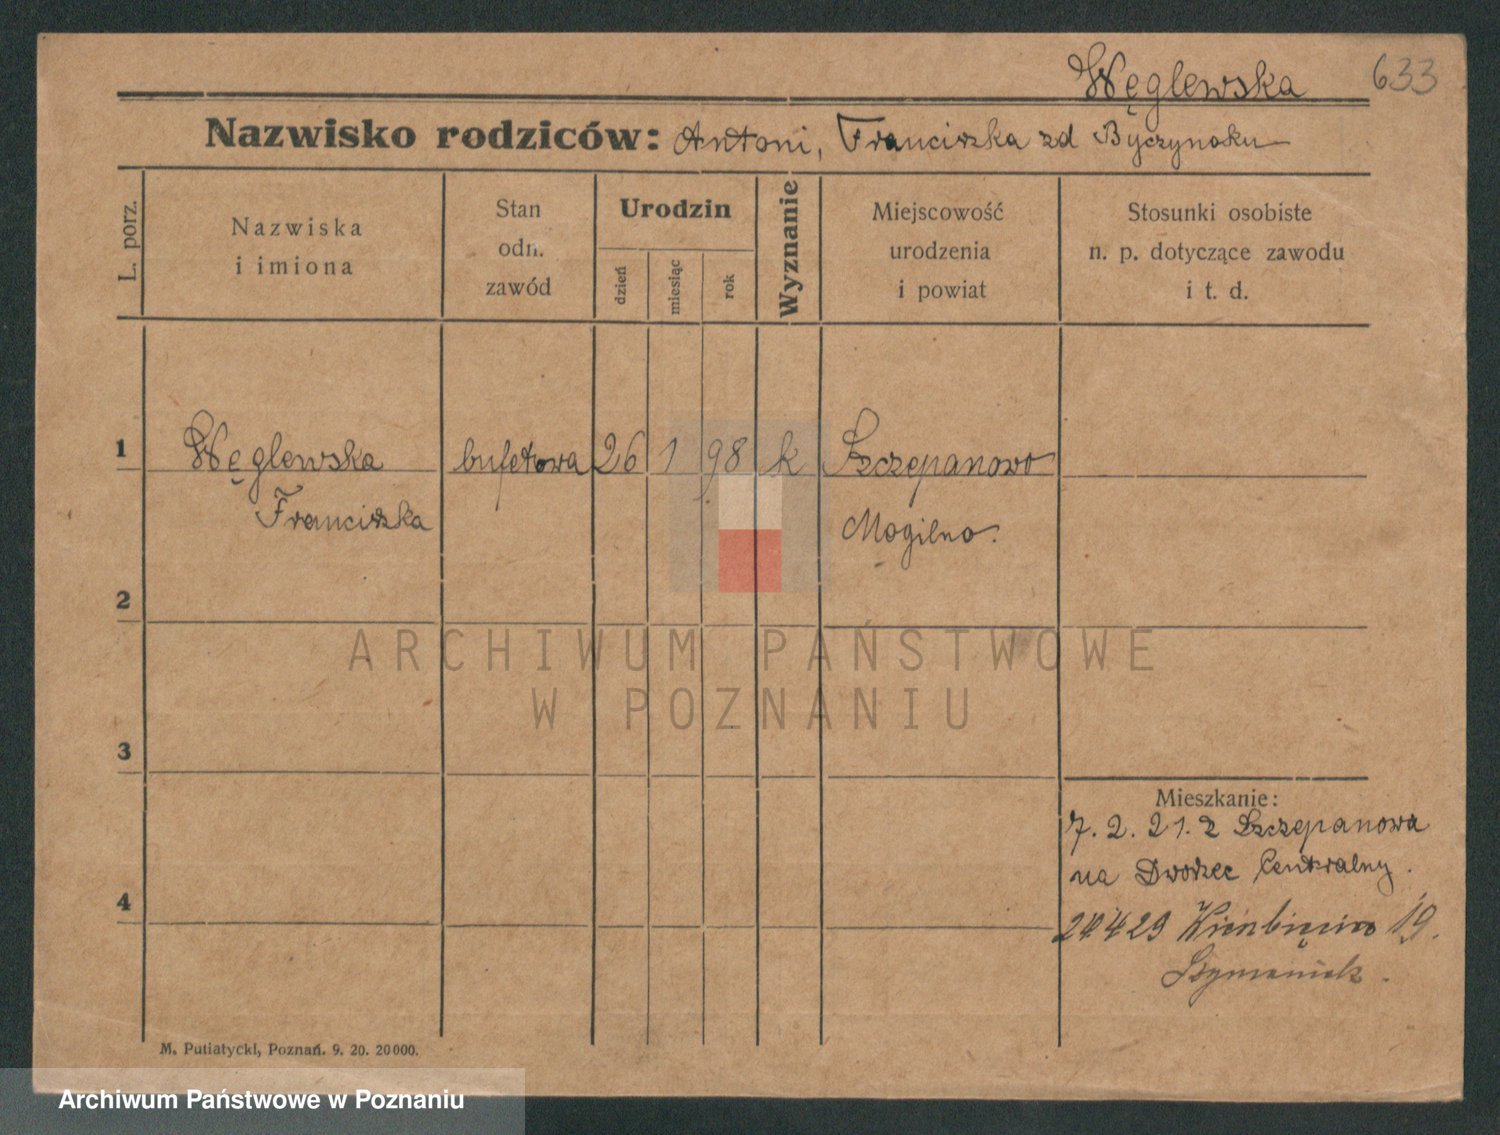 Węglewska 633
Nazwisko rodziców: Antoni, Franciszka zd
L. porz.
Nazwiska
i imiona
Stan
odn.
zawód
Urodzin
dzień
miesiąc
rok
Wyznanie
Miejscowość
urodzenia
i powiat
Stosunki osobiste
n. p. dotyczące zawodu
i t. d.
1 Węglewska bufetowa 26 1 98 k Szczepanowo
Franciszka Mogilno.
2
ARCHIWUM PAŃSTWOWE
W POZNANIU
3
Mieszkanie:
7. 2. 21. z Szczepanowa
na Dworzec Centralny.
4
19.
Szymaniak.
M. Putiatycki, Poznań. 9. 20. 20000.
Archiwum Państwowe w Poznaniu